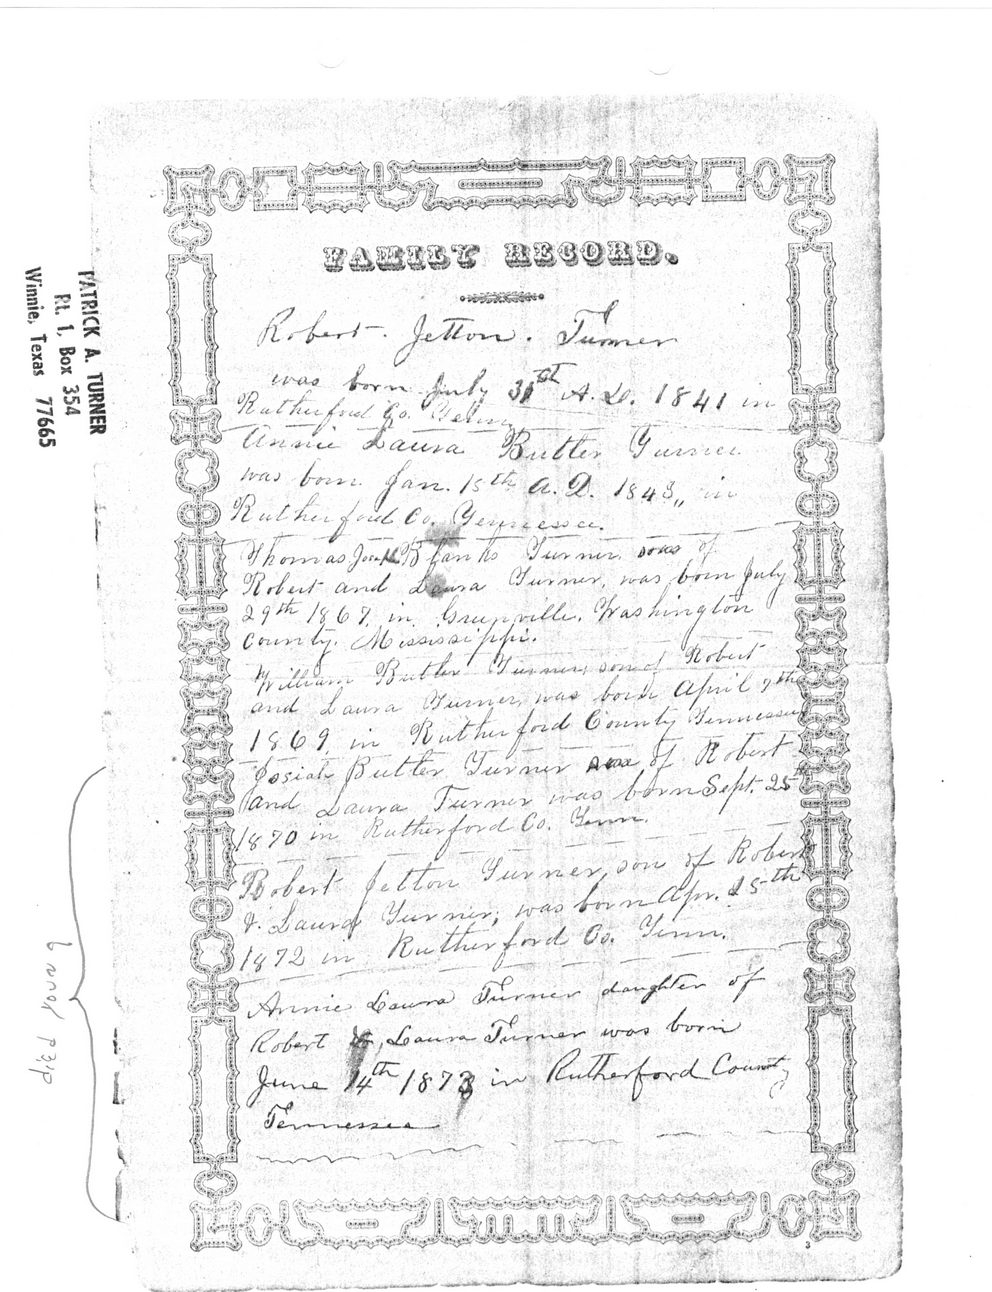 FAMILY RECORD.
Robert Jetton. Turner
was born July 31st A.D. 1841 in
Rutherford Co. Tenn
Annie Laura Butler Turner
was born Jan. 15th A.D. 1843,, in
Rutherford Co. Tennessee.
Thomas Blanks Turner son of
Robert and Laura Turner, was born July
29th 1867, in Greenville, Washington
County, Mississippi.
William Butler Turner, son of Robert
and Laura Turner, was born April 7th
1869, in Rutherford County Tennessee
Josiah Butler Turner son of Robert
and Laura Turner was born Sept. 25th
1870 in Rutherford Co. Tenn.
Robert Jetton Turner, son of Robert
& Laura Turner, was born Apr. 25th
1872 in Rutherford Co. Tenn.
Annie Laura Turner daughter of
Robert & Laura Turner was born
June 14th 1873 in Rutherford County
Tennessee
3
PATRICK A. TURNER
Rt. 1, Box 354
Winnie, Texas 77665